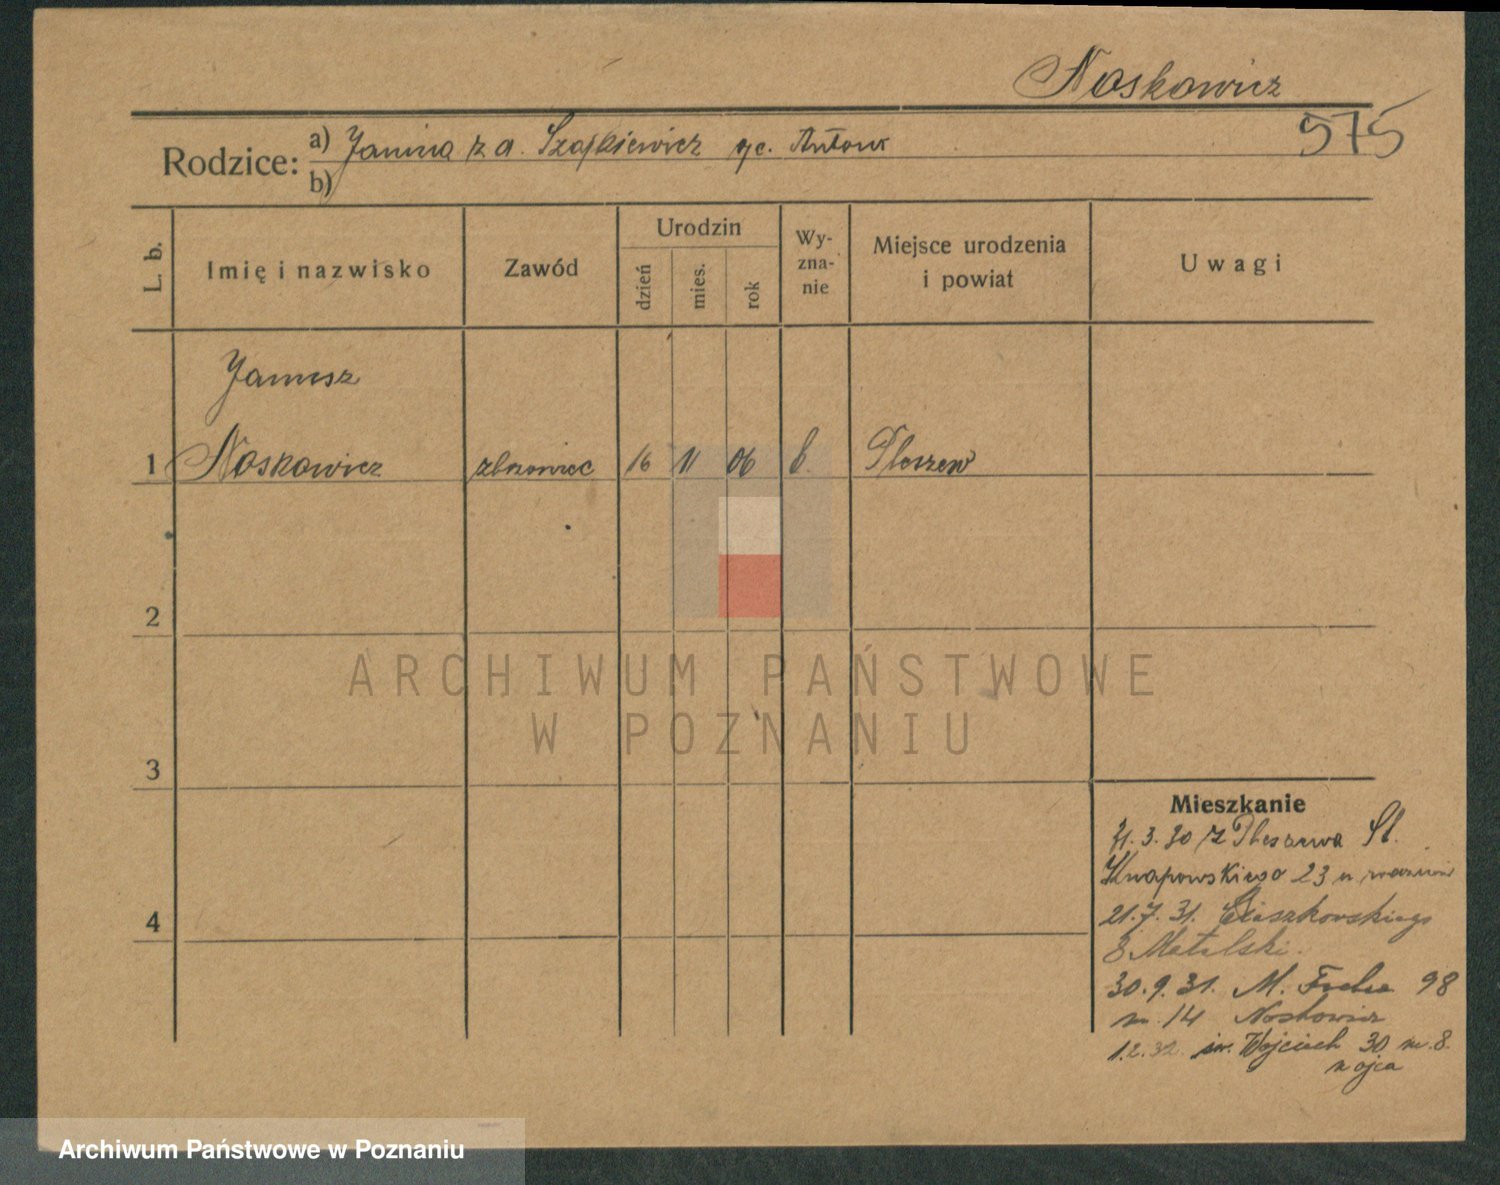 Noskowicz
575
Rodzice: a) Janina z d. Szajkiewicz oje. Antoni
b)
L. b.
Imię i nazwisko
Zawód
Urodzin
dzień
mies.
rok
Wy-
zna-
nie
Miejsce urodzenia
i powiat
Uwagi
Janusz
1 Noskowicz zbożowiec 16 11 06 k Pleszew
2
ARCHIWUM PAŃSTWOWE
W POZNANIU
3
Mieszkanie
31. 3. 30 z Pleszewa Sł.
Knapowskiego 23 u
4
21. 7. 31. Cieszkowskiego
8 Matelski.
30. 9. 31. M. Focha 98
m. 14 Noskowicz
1. 2. 32. św. Wojciech 30 m. 8.
u ojca
Archiwum Państwowe w Poznaniu